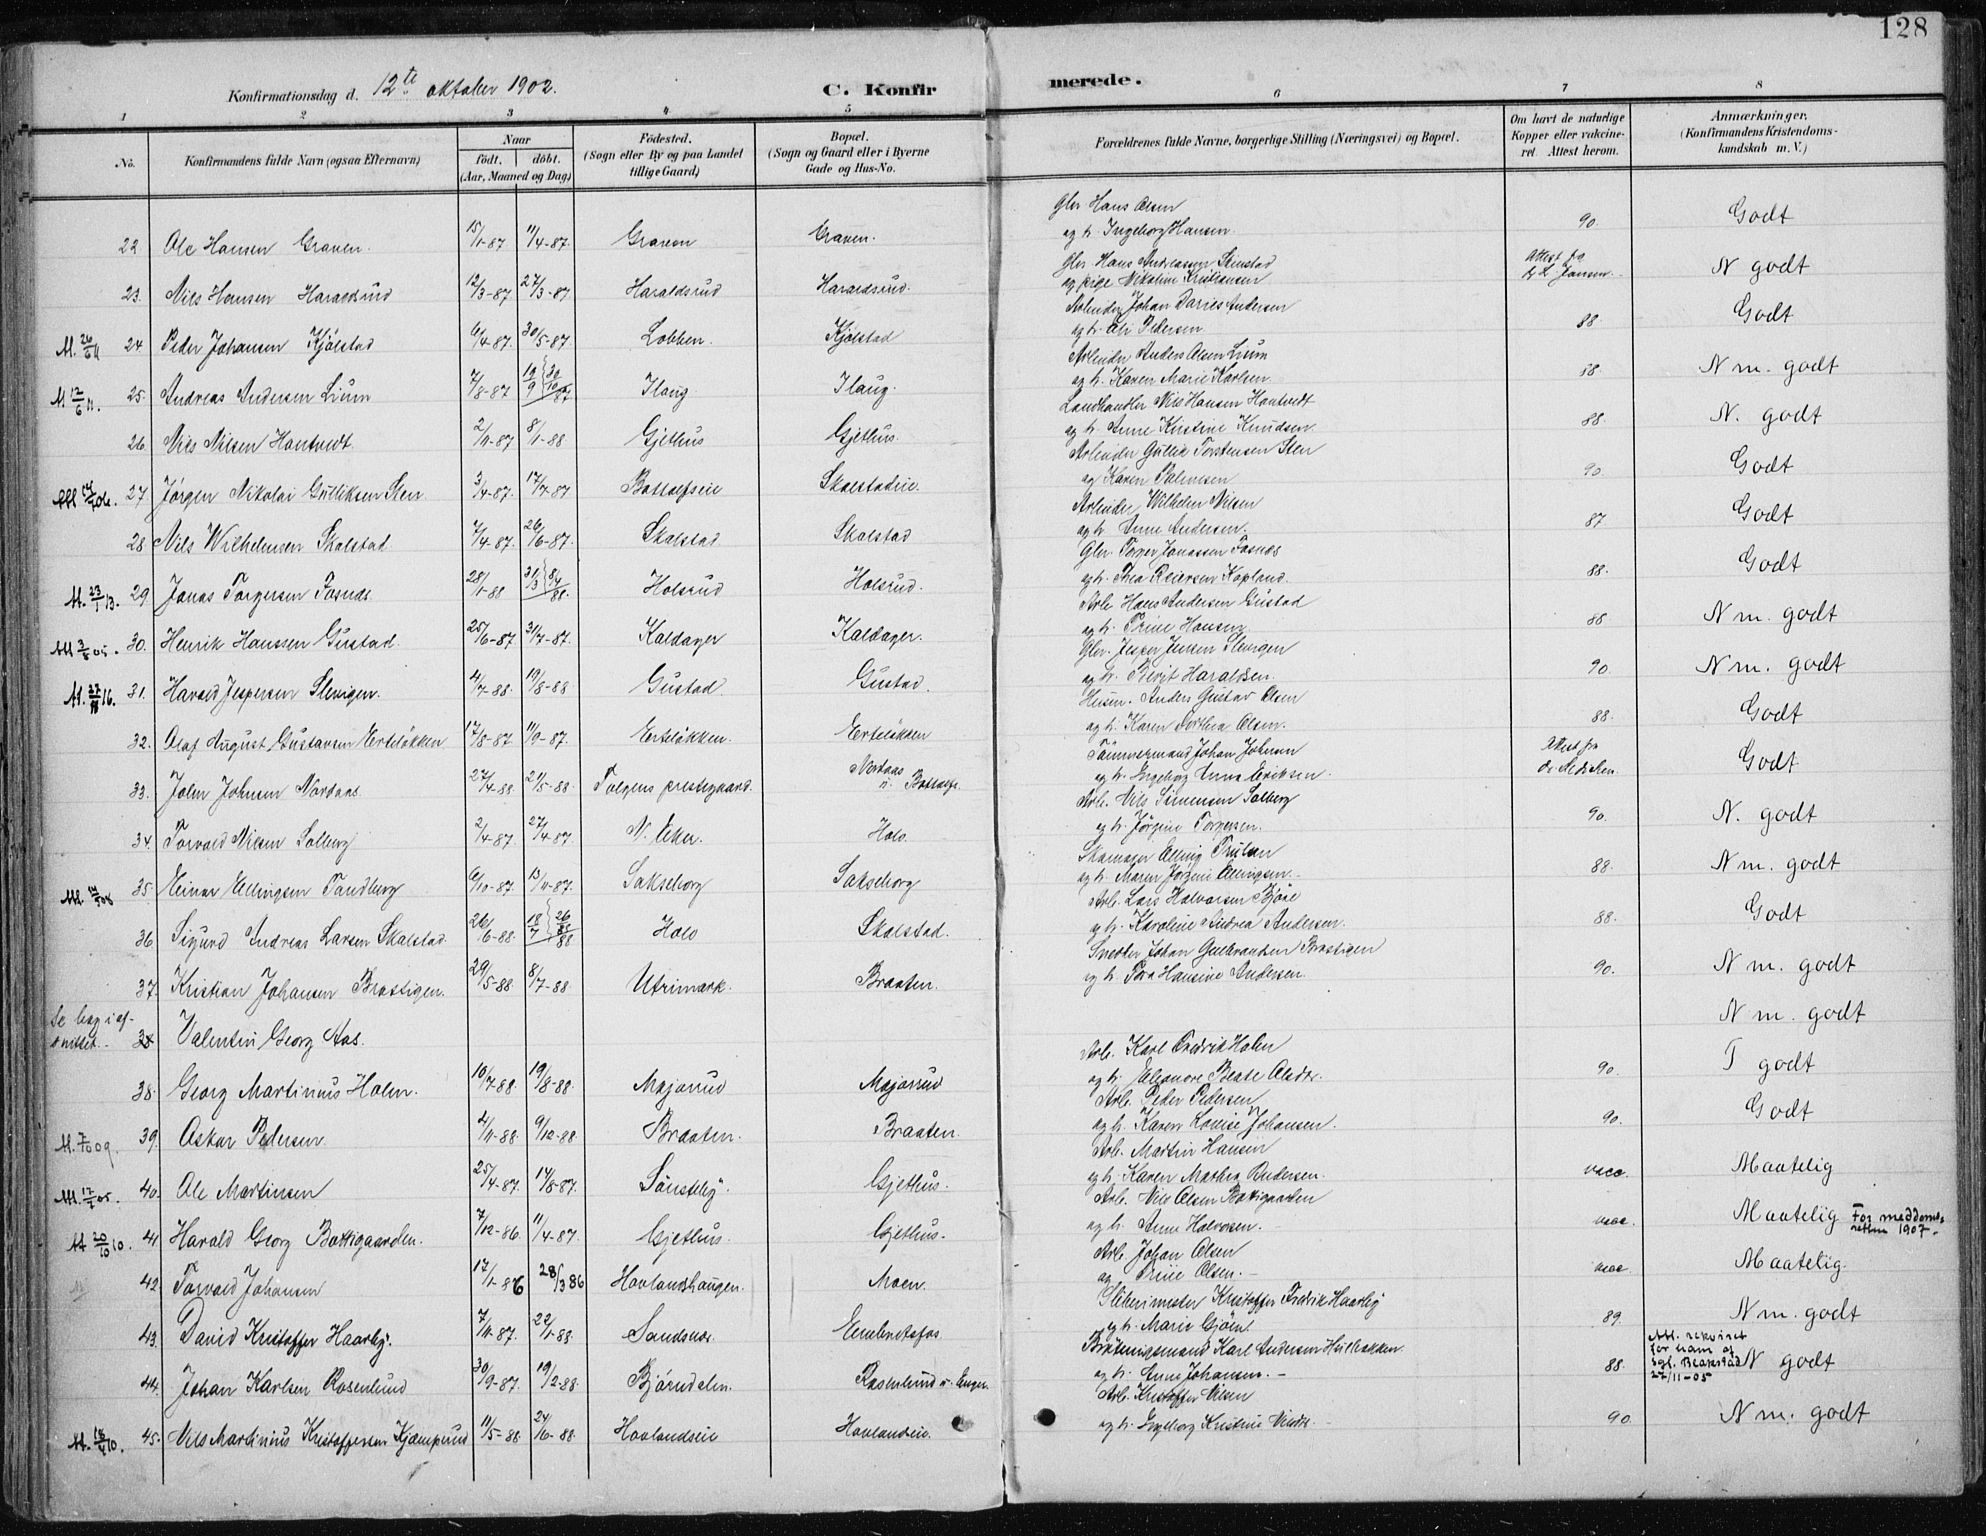 128
Konfirmationsdag d. 12te oktober 1902.
C. Konfirmerede.
1 2 3 4 5 6 7 8
No. Konfirmandens fulde Navn (ogsaa Efternavn) Naar født, døbt. (Aar, Maaned og Dag) Fødested. (Sogn eller By og paa Landet tillige Gaard) Bopæl. (Sogn og Gaard eller i Byerne Gade og Hus-No. Forældrenes fulde Navne, borgerlige Stilling (Næringsvei) og Bopæl. Om havt de naturlige Kopper eller vakcineret. Attest herom. Anmærkninger. (Konfirmandens Kristendomskundskab m. V.)
22 Ole Hansen Graven. 15/1-87 11/4-87. Graven Graven. Hans Olsen og h. Ingeborg Hansen. 90. Godt
23. Nils Hansen Haraldsrud 12/3-87 27/3-87 Haraldsrud Haraldsrud. Hans Andreassen Stenstad og pige Nikoline Kristiansen Attest fra Jansen. N godt
24 Peder Johansen Kjølstad 6/4-87. 30/5-87 Lobben. Kjølstad Arbeider Johan Darius Andersen og h. Pedersen 88. Godt
25. Andreas Andersen Lium 7/8-87 Ilaug Ilaug. Arbeider Anders Olsen Lium og h. Karen Marie Karlsen 88. N m. godt
26. Nils Nilsen Hontvedt. 2/11-87 8/1-88 Gjethus Gjethus. Landhandler Nils Hansen Hontvedt og h. Anne Kirstine Knudsen. 88. N. godt
27. Jørgen Nikolai Gulliksen Sten 3/4-87. 17/7-87 Bottolfseie Skalstadeie. Arbeider Gullik Torstensen Sten og Karen 90. Godt
28. Nils Wilhelmsen Skalstad 7/4-87. 26/6-87. Skalstad Skalstad Arbeider Wilhelm Nilsen og h. Anne Andersen. 87 Godt
M. 23/1 13. 29 Jonas Torgersen Fosnæs 28/1-88 Holsrud Holsrud. Torger Jonassen Fosnæs og h. Thea Reiersen Kopland. 88. Godt
30. Henrik Hanssen Gustad. 25/6-87 31/7-87. Kaldager Kaldager. Arb. Hans Andersen Gustad og h. Trine Hansen 88 N m. godt
31. Harald Jespersen Slevigen. 4/7-88. 19/8-88 Gustad. Gustad. Jesper Jensen Slevigen og h. Bergit Haraldsen. 90. N m. godt
32. Olaf August Gustavsen Erteløkken 17/8-87 11/9-87. Erteløkken. Erteløkken Husm. Anders Gustav Olsen og h. Karen Dorthea Olsen. 88. Godt
33. John Johnsen Nordaas. 27/4-88. 21/5-88. Tolgens prestegaard. Nordaas u. Bottolfs. Tømmermand Johan Johnsen og h. Ingeborg Anna Eriksen. Attest fra Godt
34. Torvald Nilsen Solberg 2/4-87. 27/4-87. N. Eker. Holo. Arb. Nils Simensen Solberg og h. Jørgine Torgersen. 90. N. godt
35. Einar Ellingsen Tandberg 6/10-87. 13/11-87. Sakseborg Sakseborg Skomager Elling og h. Maren Jørgine Ellingsen. 88 N m. godt
36 Sigurd Andreas Larsen Skalstad. 26/6-88. Holo Skalstad. Arb. Lars Halvorsen Bjøre og h. Karoline Andrea Andersen. 88. Godt
37. Kristian Johansen Brastigen. 29/5-88. 8/7-88 Utrimark. Braaten. Snedker Johan Gulbrandsen Brastigen og h. Tora Hansine Andersen. 90. N m. godt
38 Valentin Georg Aas. N m. godt
38. Georg Martinius Holen. 10/7-88. 19/8-88. Majorrud Majorrud Arb. Karl Fredrik Holen og h. Eleonore Beate Olsdtr. 90. T godt
M. 7/10 09. 39. Oskar Pedersen 2/11-88. 9/12-88 Braaten. Braaten. Arb. Peder Pedersen og h. Karen Louise Johansen. 90. Godt
40. Ole Martinsen 25/4-87. 14/8-87. Sønsteby. Gjethus. Arb. Martin Hansen og h. Karen Mathea Andersen. vacc. Maatelig
M 20/10 10. 41 Harald Georg Bakkegaarden. 7/12-86 11/4-87. Gjethus. Gjethus. Arb. Nils Olsen og h. Anne Halvorsen. vacc. Maatelig For meddomsretten 1907.
42. Torvald Johansen 17/1-86 28/3 86 Hovlandshaugen. Moen. Arb. Johan Olsen og Trine Olsen. vacc. Maatelig.
43. David Kristoffer Haarby. 7/11-87. 22/1-88. Sandsnæs. Embretsfos. Slibermester Kristoffer Fredrik Haarby og h. Marie 89. N m. godt
44. Johan Karlsen Rosenlund 30/9-87. 19/2-88. Bjørndalen. Rosenlund u. Enger. Karl Andersen og h. Anne Johansen. 88. Att. rekviret for ham af 27/11-05 N godt
45. Nils Martinius Kristoffersen Kjæmperud 11/5-88. 24/6-88. Hovlandseie Hovlandseie. Arb. Kristoffer Nilsen og h. Ingeborg Kristine 90. N m. godt